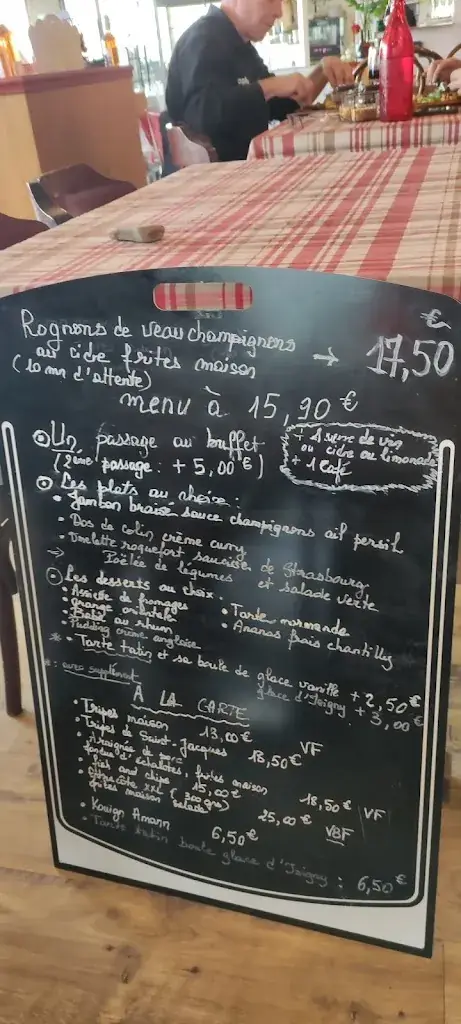 Rognons de veau champignons
au cidre frites maison → 17,50 €
(10 mn d'attente)
menu à 15,90 €
Un passage au buffet
(2ème passage : + 5,00 €)
+ 1 verre de vin
ou cidre ou limonade
+ 1 café
Les plats au choix :
• Jambon braisé sauce champignons ail persil
• Dos de colin crème curry
• Omelette roquefort saucisse de Strasbourg
→ Poêlée de légumes et salade verte
Les desserts au choix :
• Assiette de fromages
• Orange orientale
• Baba au rhum
• Pudding crème anglaise
• Tarte normande
• Ananas frais chantilly
* • Tarte tatin et sa boule de glace vanille + 2,50 €
glace d'Isigny + 3,00 €
* : avec supplément
A LA CARTE
• Tripes maison 13,00 €
• Tripes de Saint-Jacques 18,50 € VF
• Araignée de porc
fondue d'échalotes, frites maison 18,50 € VF
• Fish and chips 15,00 €
• Entrecôte XXL (300 grs)
frites maison salade 25,00 € VBF
• Kouign Amann 6,50 €
• Tarte tatin boule glace d'Isigny : 6,50 €